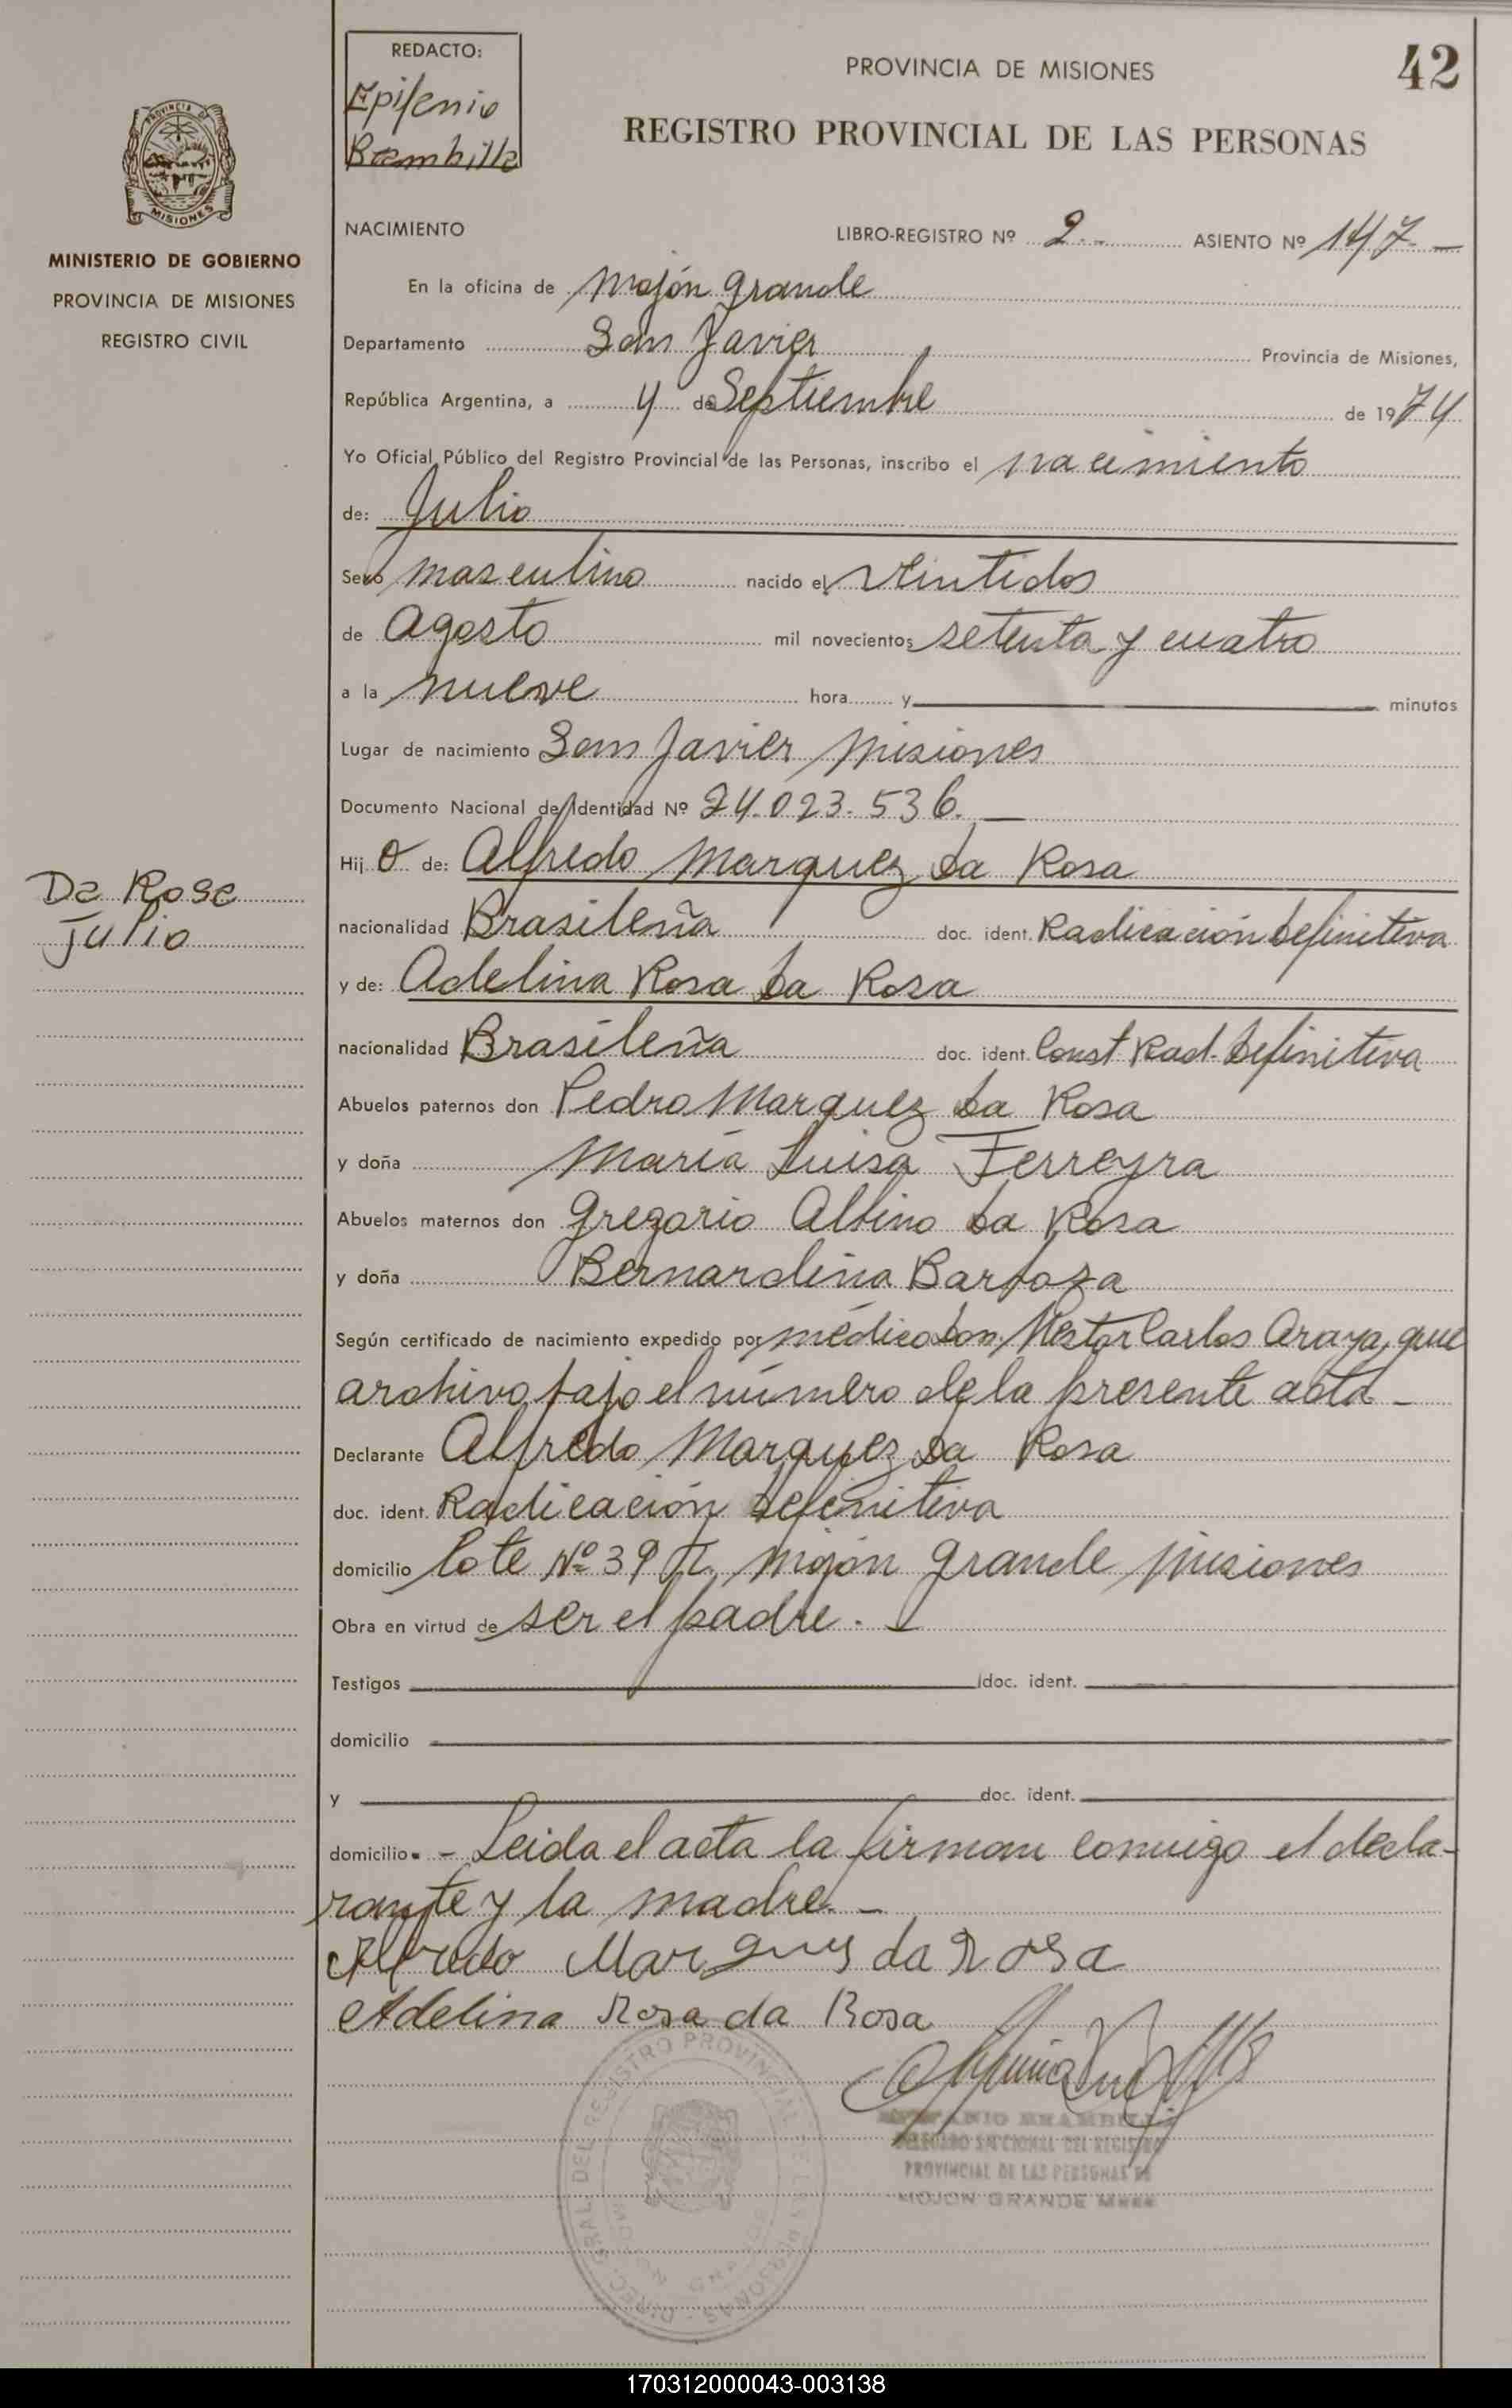 REDACTO:
Epifenio
Brambilla
PROVINCIA DE MISIONES
42
REGISTRO PROVINCIAL DE LAS PERSONAS
MISIONES
MINISTERIO DE GOBIERNO
PROVINCIA DE MISIONES
REGISTRO CIVIL
NACIMIENTO LIBRO-REGISTRO Nº 2.- ASIENTO Nº 147-
En la oficina de Mojón grande
Departamento San Javier Provincia de Misiones,
República Argentina, a 4 de Septiembre de 1974
Yo Oficial Público del Registro Provincial de las Personas, inscribo el nacimiento
de: Julio
Sexo masculino nacido el veintidos
de Agosto mil novecientos setenta y cuatro
a la nueve hora y minutos
Lugar de nacimiento San Javier Misiones
Documento Nacional de Identidad Nº 24.023.536.
Hij o de: Alfredo Marquez Da Rosa
Da Rosa
Julio
nacionalidad Brasileña doc. ident. Radicación Definitiva
y de: Adelina Rosa Da Rosa
nacionalidad Brasileña doc. ident. Const Rad. Definitiva
Abuelos paternos don Pedro Marquez Da Rosa
y doña María Luisa Ferreyra
Abuelos maternos don Gregorio Albino Da Rosa
y doña Bernardina Barboza
Según certificado de nacimiento expedido por médico Don Nestor Carlos Araya, que
archivo bajo el número de la presente acta -
Declarante Alfredo Marquez Da Rosa
doc. ident. Radicación Definitiva
domicilio lote Nº 39 Mojón grande Misiones
Obra en virtud de ser el padre. -
Testigos doc. ident.
domicilio
y doc. ident.
domicilio. - Leida el acta la firman conmigo el decla-
rante y la madre. -
Alfredo Marques da Rosa
Adelina Rosa da Rosa
BRAMBILLA
DELEGADO SECCIONAL DEL REGISTRO
PROVINCIAL DE LAS PERSONAS DE
MOJON GRANDE
DIREC. GRAL. DEL REGISTRO PROVINCIAL DE LAS PERSONAS
170312000043-003138